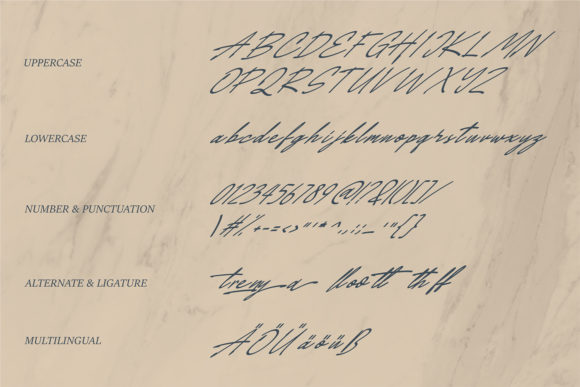 UPPERCASE
ABCDEFGHIJKLMN
OPQRSTUVWXYZ
LOWERCASE
abcdefghijklmnopqrstuvwxyz
NUMBER & PUNCTUATION
0123456789@!?&()[]/
ALTERNATE & LIGATURE
ll oo tt th ff
MULTILINGUAL
ÄÖÜäöüß